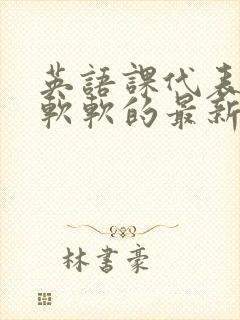 英語課代表
軟軟的最新
林書豪